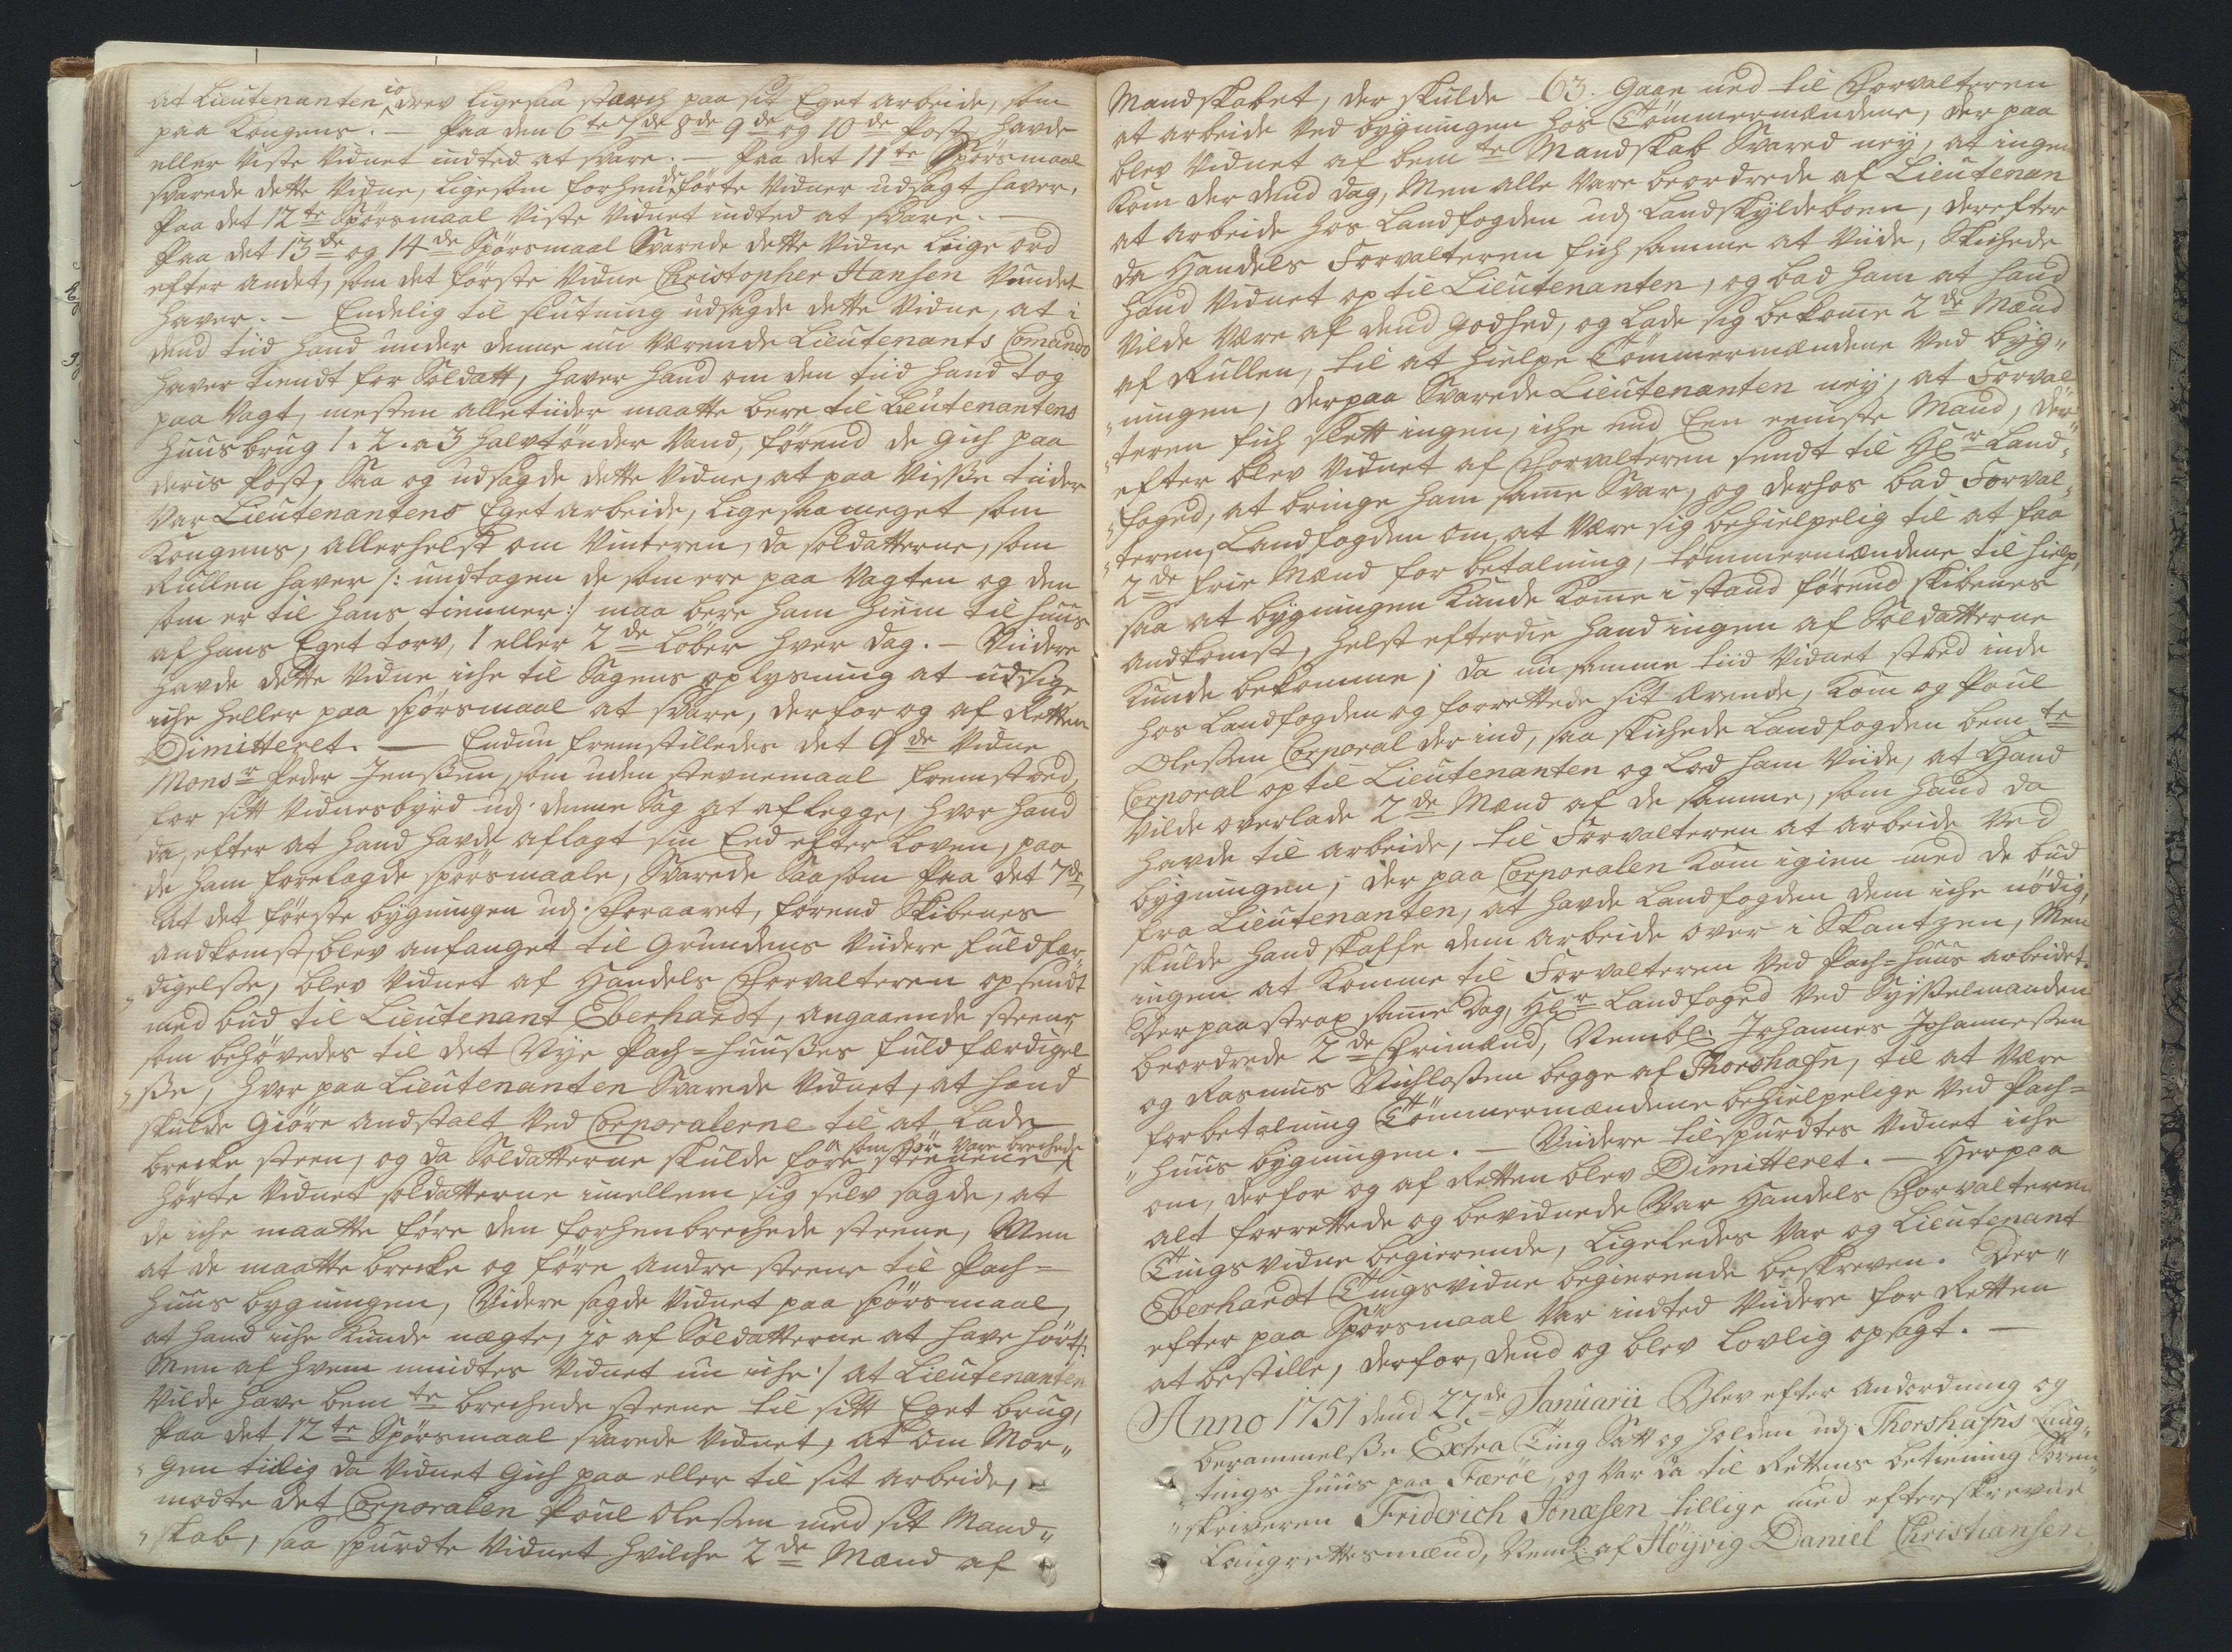 at Lieutenanten jo drev ligesaa starch paa sit Eget arbeide, som
paa Kongens. — Paa den 6te 7de 8de 9de og 10de Post havde
eller viste vidnet indted at svare. — Paa det 11te Spörsmaal
svarede dette Vidne, ligesom forhen udförte Vidner udsagt haver.
Paa det 12te Spörsmaal viste vidnet indted at svare. —
Paa det 13de og 14de Spörsmaal Svarede dette Vidne Lige ord
efter andet, som det förste Vidne Christopher Hansen Vundet
haver. — Endelig til slutning udsagde dette Vidne, at i
dend tiid hand under denne nu værende Lieutenants Comando
haver tiendt for Soldatt, haver hand om den tiid hand tog
paa Vagt, mesten alletiider maatte bere til Lieutenantens
huus brug 1. 2. a 3 halvtönder Vand, förend de gich paa
deris Post, Saa og udsagde dette Vidne, at paa Visße tiider
Var Lieutenantens Eget arbeide, ligesaa meget som
Kongens, allerhelst om Vinteren, da soldatterne, som
Rullen haver /: undtagen de som ere paa Vagten og den
som er til hans tienner :/ maa bere ham hiem til huus
af hans Eget torv, 1 eller 2de Löber hver dag. — Viidere
havde dette Vidne iche til Sagens oplysning at udsige
iche heller paa spörsmaal at svare, derfor og af Retten
Dimitteret. — Endnu fremstilledes det 9de Vidne
Monsr Peder Jenßen, som uden stevnemaal fremstoed,
for sitt Vidnesbyrd udj denne Sag at aflegge, hvor hand
da, efter at hand havde aflagt sin Eed efter Loven, paa
de ham forelagde spörsmaale, Svarede Saasom Paa det 7de,
at det förste bygningen udj foraaret, förend Skibenes
andkomst, blev anfanget til Grundens Viidere fuldfær„
„digelse, blev Vidnet af Handels Forvalteren opsendt
med bud til Lieutenant Eberhardt, angaaende steene
som behövedes til det Nye Pach=huußes fuldfærdigel„
„ße, hvor paa Lieutenanten Svarede Vidnet, at hand
skulde Giöre andstalt ved Corporalerne til at Lade
brecke steen, og da Soldatterne skulde före steenene som för vare brechede
hörte Vidnet soldatterne imellem sig selv sagde, at
de iche maatte före den forhenbrechede steene, Men
at de maatte brecke og före andre steene til Pach=
huus bygningen, Videre sagde Vidnet paa spörsmaal,
at hand iche kunde nægte, jo af Soldatterne at have hört /:
Men af hvem mindtes Vidnet nu iche :/ at Lieutenanten
Vilde have bemte brechede steene til sitt Eget brug,
Paa det 12te Spörsmaal svarede Vidnet, at om Mor„
„gen tiilig da Vidnet gich paa eller til sit arbeide,
mödte det Corporalen Poul Olesen med sit Mand„
„skab, saa spurdte Vidnet hvilche 2de Mænd af
Mandskabet, der skulde 63. gaae ned til Forvalteren
at arbeide ved bygningen hos Tömmermændene, der paa
blev Vidnet af bemte Mandskab Svared ney, at ingen
kom der dend dag, Men alle Vare beordrede af Lieutenan
at arbeide hos Landfogden udj Landskyldeboen, derefter
da Handels Forvalteren fich samme at viide, Skichede
hand Vidnet op til Lieutenanten, og bad ham at hand
Vilde være af dend godhed, og lade sig bekomme 2de Mænd
af Rullen, til at hielpe Tömmermændene ved byg„
„ningen, derpaa Svarede Lieutenanten ney, at Forval„
„teren fich slett ingen, iche end Een eeniste Mand, der
efter blev Vidnet af Forvalteren sendt til Hr Land„
„foged, at bringe ham samme Svar, og derhos bad Forval„
„teren, Landfogden om, at være sig behielpelig til at faa
2de frie Mænd for betalning, tömmermændene til hielp,
saa at bygningen kunde komme i stand förend skibenes
andkomst, helst efterdie hand ingen af Soldatterne
kunde bekomme; da nu samme tiid Vidnet stoed inde
hos Landfogden og forrettede sit ærende, kom og Poul
Olesen Corporal der ind, saa skichede Landfogden bemte
Corporal op til Lieutenanten og Lod ham viide, at hand
Vilde overlade 2de Mænd af de samme, som hand da
havde til arbeide, til Forvalteren at arbeide ved
bygningen; der paa Corporalen kom igien med de bud
fra Lieutenanten, at havde Landfogden dem iche nödig,
skulde hand skaffe dem arbeide over i Skantzen, Men
ingen at komme til Forvalteren ved Pach=huus arbeidet.
Derpaa strax samme Dag, Hr Landfoged ved Sysselmanden
beordrede 2de Frimænd, Nembl: Johannes Johannesen
og Rasmus Nichlasen begge af Thorshafn, til at være
forbetalning Tömmermændene behielpelige ved Pach=
„huus bygningen. — Viidere tilspurdtes Vidnet iche
om, derfor og af Retten blev Dimitteret. — Herpaa
alt forrettede og bevidnede Var Handels Forvalteren
Tingsvidne begierende, Ligeledes Var og Lieutenant
Eberhardt Tingsvidne begierende beskreven. Der„
efter paa Spörsmaal Var indted Viidere for Retten
at bestille, derfor, dend og blev Lovlig opsagt. —
Anno 1751 dend 27de Januarii Blev efter andordning og
berammelße Extra Ting Satt og holden udj Thorshafns Laug„
„tings huus paa Færöe, og var da til Rettens betiening Soren„
„skriveren Friderich Jonæsen tillige med efterskrevne
Laugrettesmænd, Neml: af Höyvig Daniel Christiansen